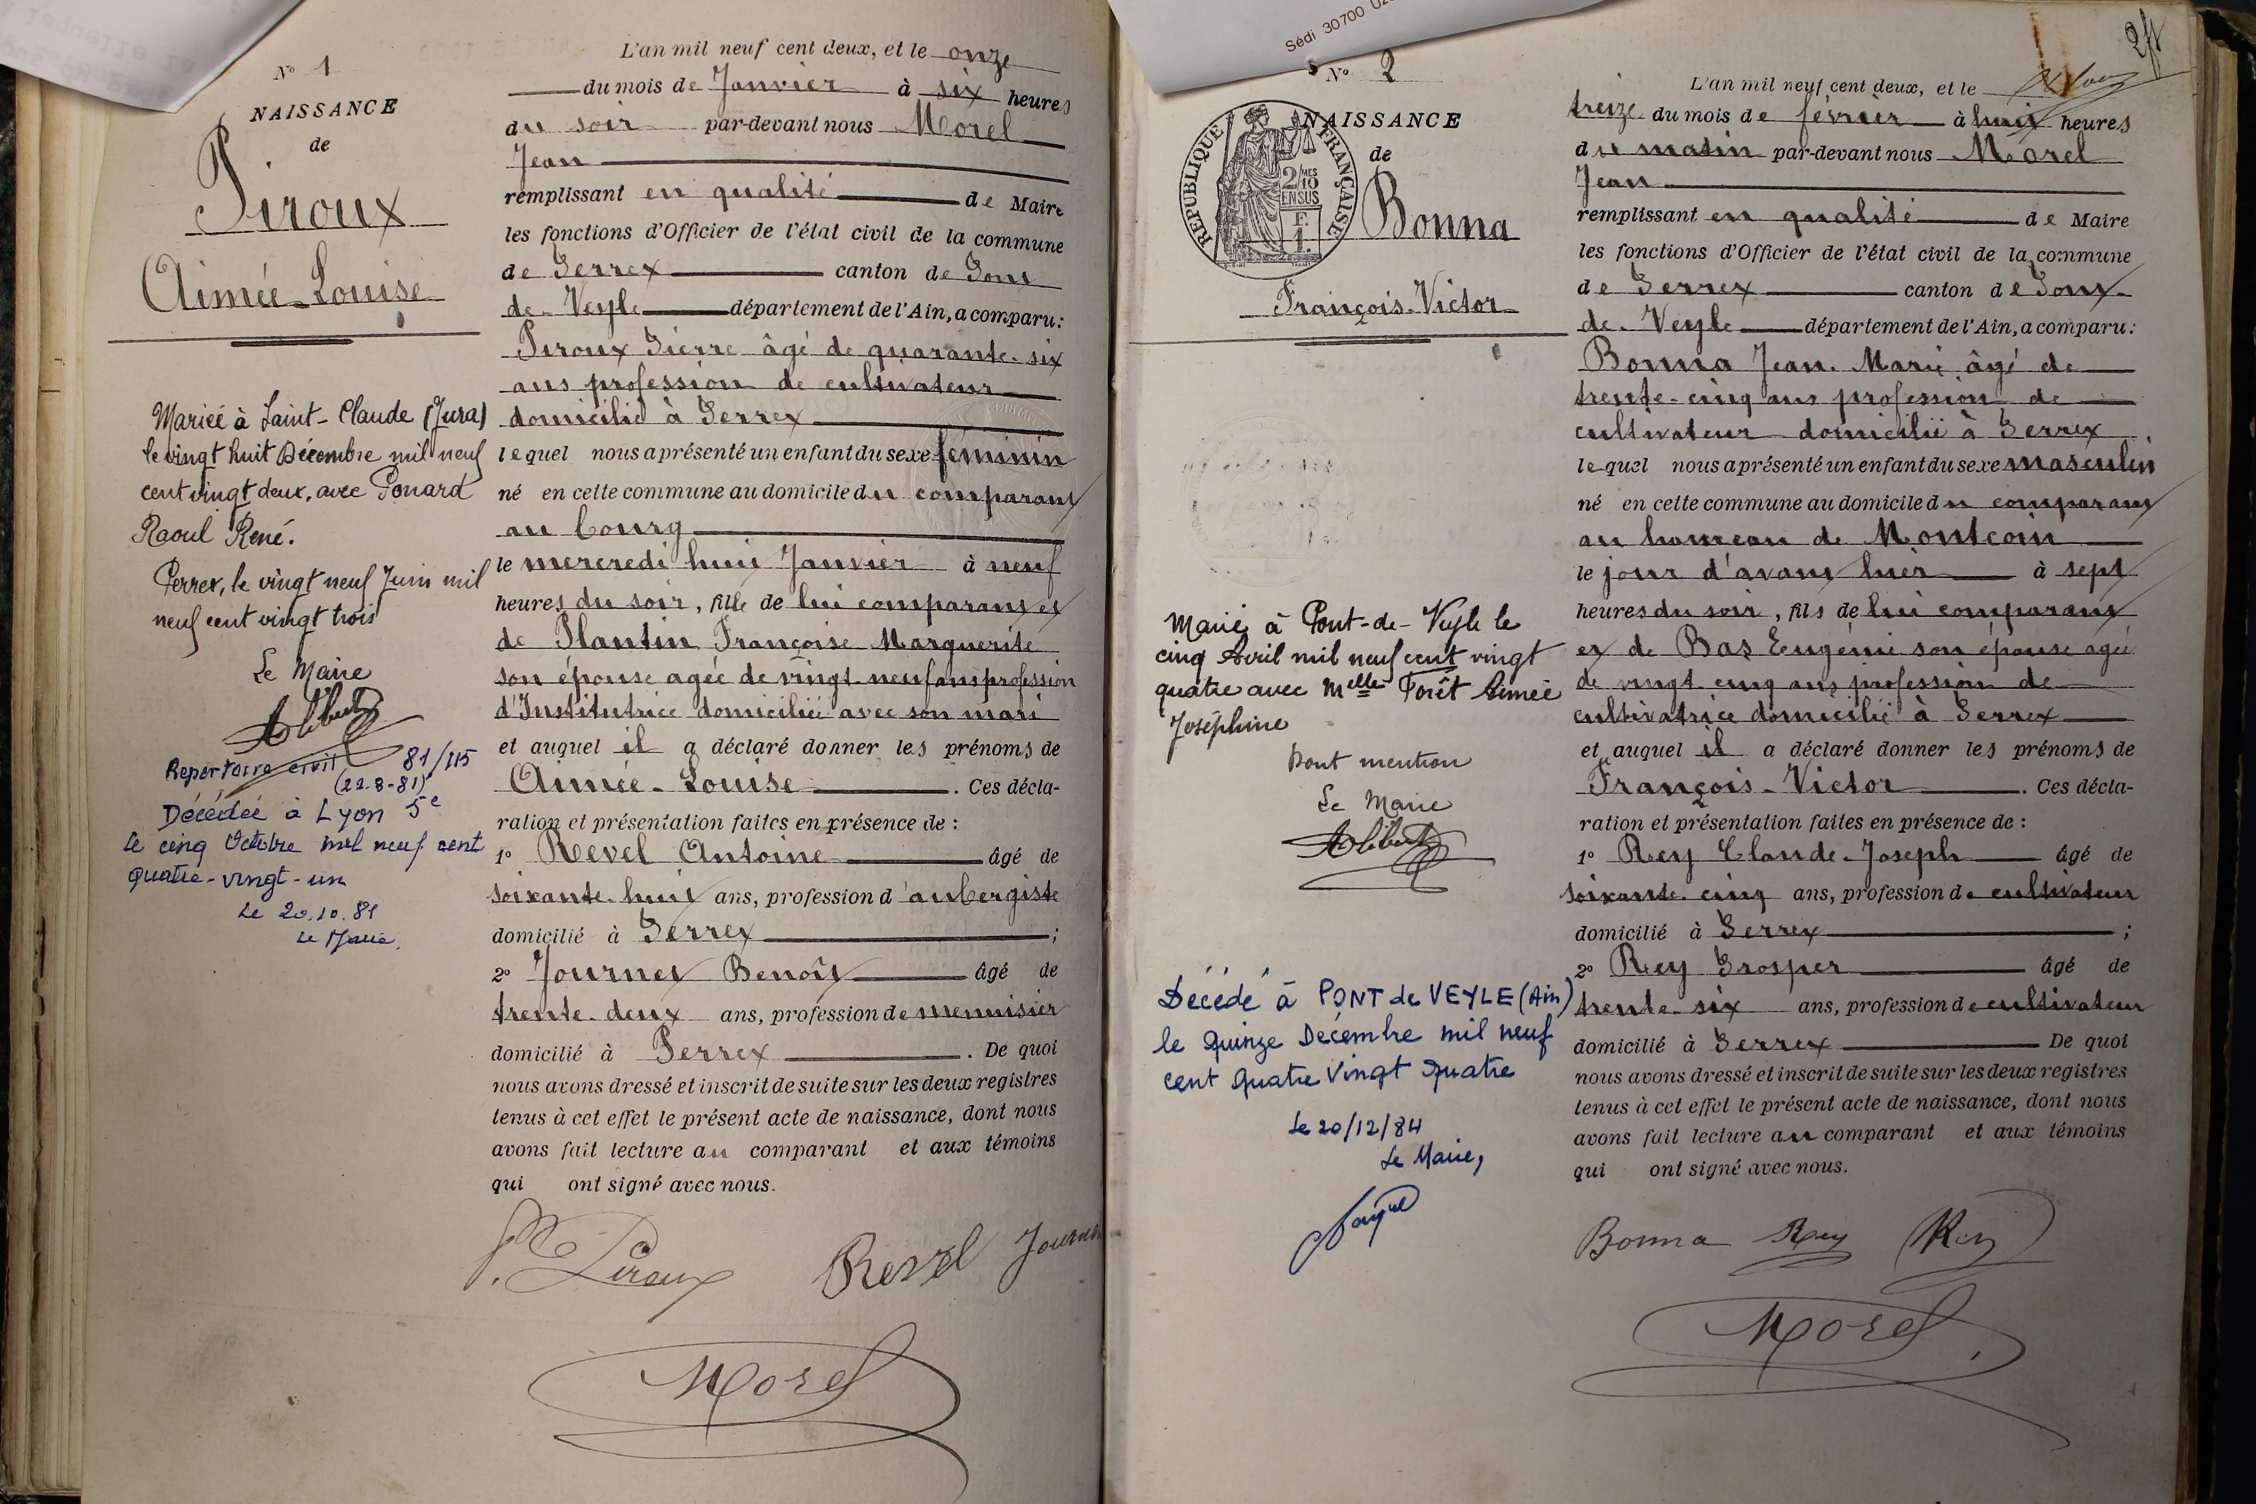 Nº 1
NAISSANCE
de
Piroux
Aimée-Louise
Mariée à Saint-Claude (Jura)
le vingt huit Décembre mil neuf
cent vingt deux, avec Ponard
Raoul René.
Perrex, le vingt neuf Juin mil
neuf cent vingt trois
Le Maire
Repertoire civil 81/115
(22-8-81)
Décédée à Lyon 5e
le cinq Octobre mil neuf cent
quatre-vingt-un
Le 20.10.81
Le Maire.
L'an mil neuf cent deux, et le onze
du mois de Janvier à six heures
du soir par-devant nous Morel
Jean
remplissant en qualité de Maire
les fonctions d'Officier de l'état civil de la commune
de Perrex canton de Pont
de Veyle département de l'Ain, a comparu:
Piroux Pierre âgé de quarante-six
ans profession de cultivateur
domicilié à Perrex
lequel nous a présenté un enfant du sexe féminin
né en cette commune au domicile du comparant
au bourg
le mercredi huit Janvier à neuf
heures du soir, fille de lui comparant et
de Plantin Françoise Marguerite
son épouse agée de vingt-neuf ans profession
d'Institutrice domiciliée avec son mari
et auquel il a déclaré donner les prénoms de
Aimée-Louise. Ces décla-
ration et présentation faites en présence de :
1º Revel Antoine âgé de
soixante-huit ans, profession d'aubergiste
domicilié à Perrex ;
2º Journet Benoît âgé de
trente-deux ans, profession de menuisier
domicilié à Perrex. De quoi
nous avons dressé et inscrit de suite sur les deux registres
tenus à cet effet le présent acte de naissance, dont nous
avons fait lecture au comparant et aux témoins
qui ont signé avec nous.
P. Piroux Revel Journet
Morel
Sédi 30700
Nº 2
NAISSANCE
de
RÉPUBLIQUE FRANÇAISE
2/10
MES
EN SUS
F.
1.
Bonna
François-Victor
Marié à Pont-de-Veyle le
cinq Avril mil neuf cent vingt
quatre avec Melle Forêt Aimée
Joséphine
Dont mention
Le Maire
Décédé à PONT de VEYLE (Ain)
le quinze Décembre mil neuf
cent quatre vingt quatre
Le 20/12/84
Le Maire,
L'an mil neuf cent deux, et le
treize du mois de février à huit heures
du matin par-devant nous Morel
Jean
remplissant en qualité de Maire
les fonctions d'Officier de l'état civil de la commune
de Perrex canton de Pont
de Veyle département de l'Ain, a comparu:
Bonna Jean-Marie âgé de
trente-cinq ans profession de
cultivateur domicilié à Perrex
lequel nous a présenté un enfant du sexe masculin
né en cette commune au domicile du comparant
au hameau de Montcoin
le jour d'avant hier à sept
heures du soir, fils de lui comparant
et de Bas Eugénie son épouse agée
de vingt cinq ans profession de
cultivatrice domicilié à Perrex
et auquel il a déclaré donner les prénoms de
François-Victor. Ces décla-
ration et présentation faites en présence de :
1º Rey Claude-Joseph âgé de
soixante cinq ans, profession de cultivateur
domicilié à Perrex ;
2º Rey Prosper âgé de
trente-six ans, profession de cultivateur
domicilié à Perrex De quoi
nous avons dressé et inscrit de suite sur les deux registres
tenus à cet effet le présent acte de naissance, dont nous
avons fait lecture au comparant et aux témoins
qui ont signé avec nous.
Bonna Rey Rey
Morel